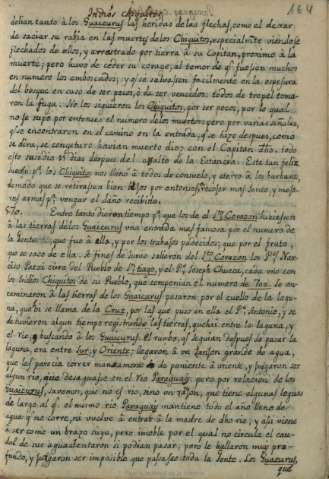 Indios Chiquitos 164
dolian tanto à los Guaycurus las heridas de las flechas, como el dexar
de saciar su rabia en las muertes de los Chiquitos, especialm.te viendose
flechados de ellos, y arrastrado por tierra à su Capitan, proximo à la
muerte; pero huvo de ceder su corage, al temor de q.e fuessen muchos
en numero los emboscados; y q.e se salvassen facilmente en la espesura
del bosque en caso de ser pocos, ò de ser vencidos. todos de tropel toma-
ron la fuga. No los siguieron los Chiquitos, por ser pocos, por lo qual
no se supo por entonces el numero de los muertos: pero por varias señales,
q.e se encontraron en el camino en la entrada, q.e se hizo despues, como
se dira, se congeturò havian muerto dies con el Capitan dho. todo
esto sucedio dias despues del assalto de la Estancia. Este tan feliz
de los Chiquitos nos llenò à todos de consuelo, y aterrò à los barbaros,
de modo que se retirassen bien lexos por entonces, recoger mas Gente, y mejo-
res armas p.a vengar el daño recibido.
Entre tanto dieron tiempo p.a que los de el S.mo Corazon hiciessen
à las tierras de los Guaycurus una entrada mas famosa por el numero de
la Gente, que fue à ella, y por los trabajos padecidos; que por el fruto,
que se saco de ella. A fines de Junio salieron del S.mo Corazon los P.es
Cura del Pueblo de S.tiago, y el P. Joseph Chueca, cada uno con
los Indios Chiquitos de su Pueblo, que componian el numero de Se en-
caminaron à las tierras de los Guaycurus passaron por el cuello de la lagu-
na, que alli se llama de la Cruz, por la que puso en ella el P. Antonio, y se
detuvieron algun tiempo registrando las tierras, que hai entre la laguna, y
el rio, buscando à los Guaycurus. El rumbo, q.e seguian despues de passar la
laguna, era entre Sur, y Oriente; llegaron à un Zanjon grande de agua,
que les parecia correr mansamente de poniente à oriente, y juzgaron ser
algun rio, que desaguasse en el rio Paraguay: pero por relacion de los
Guaycurus, savemos, que no es rio, sino un Zanjon, que tiene algunas leguas
de largo al q.e el mismo rio Paraguay mantiene todo el año lleno de
agua: q.e no corre, ni vuelve à entrar à la madre de dho rio; y assi viene
à ser como un brazo suyo, pero inmoble por el qual no circula el cau-
dal de sus aguas. Intentaron si podian passar; pero le hallaron muy pro-
fundo, y juzgaron ser impossible que passasse toda la Gente. Los Guaycurus,
que